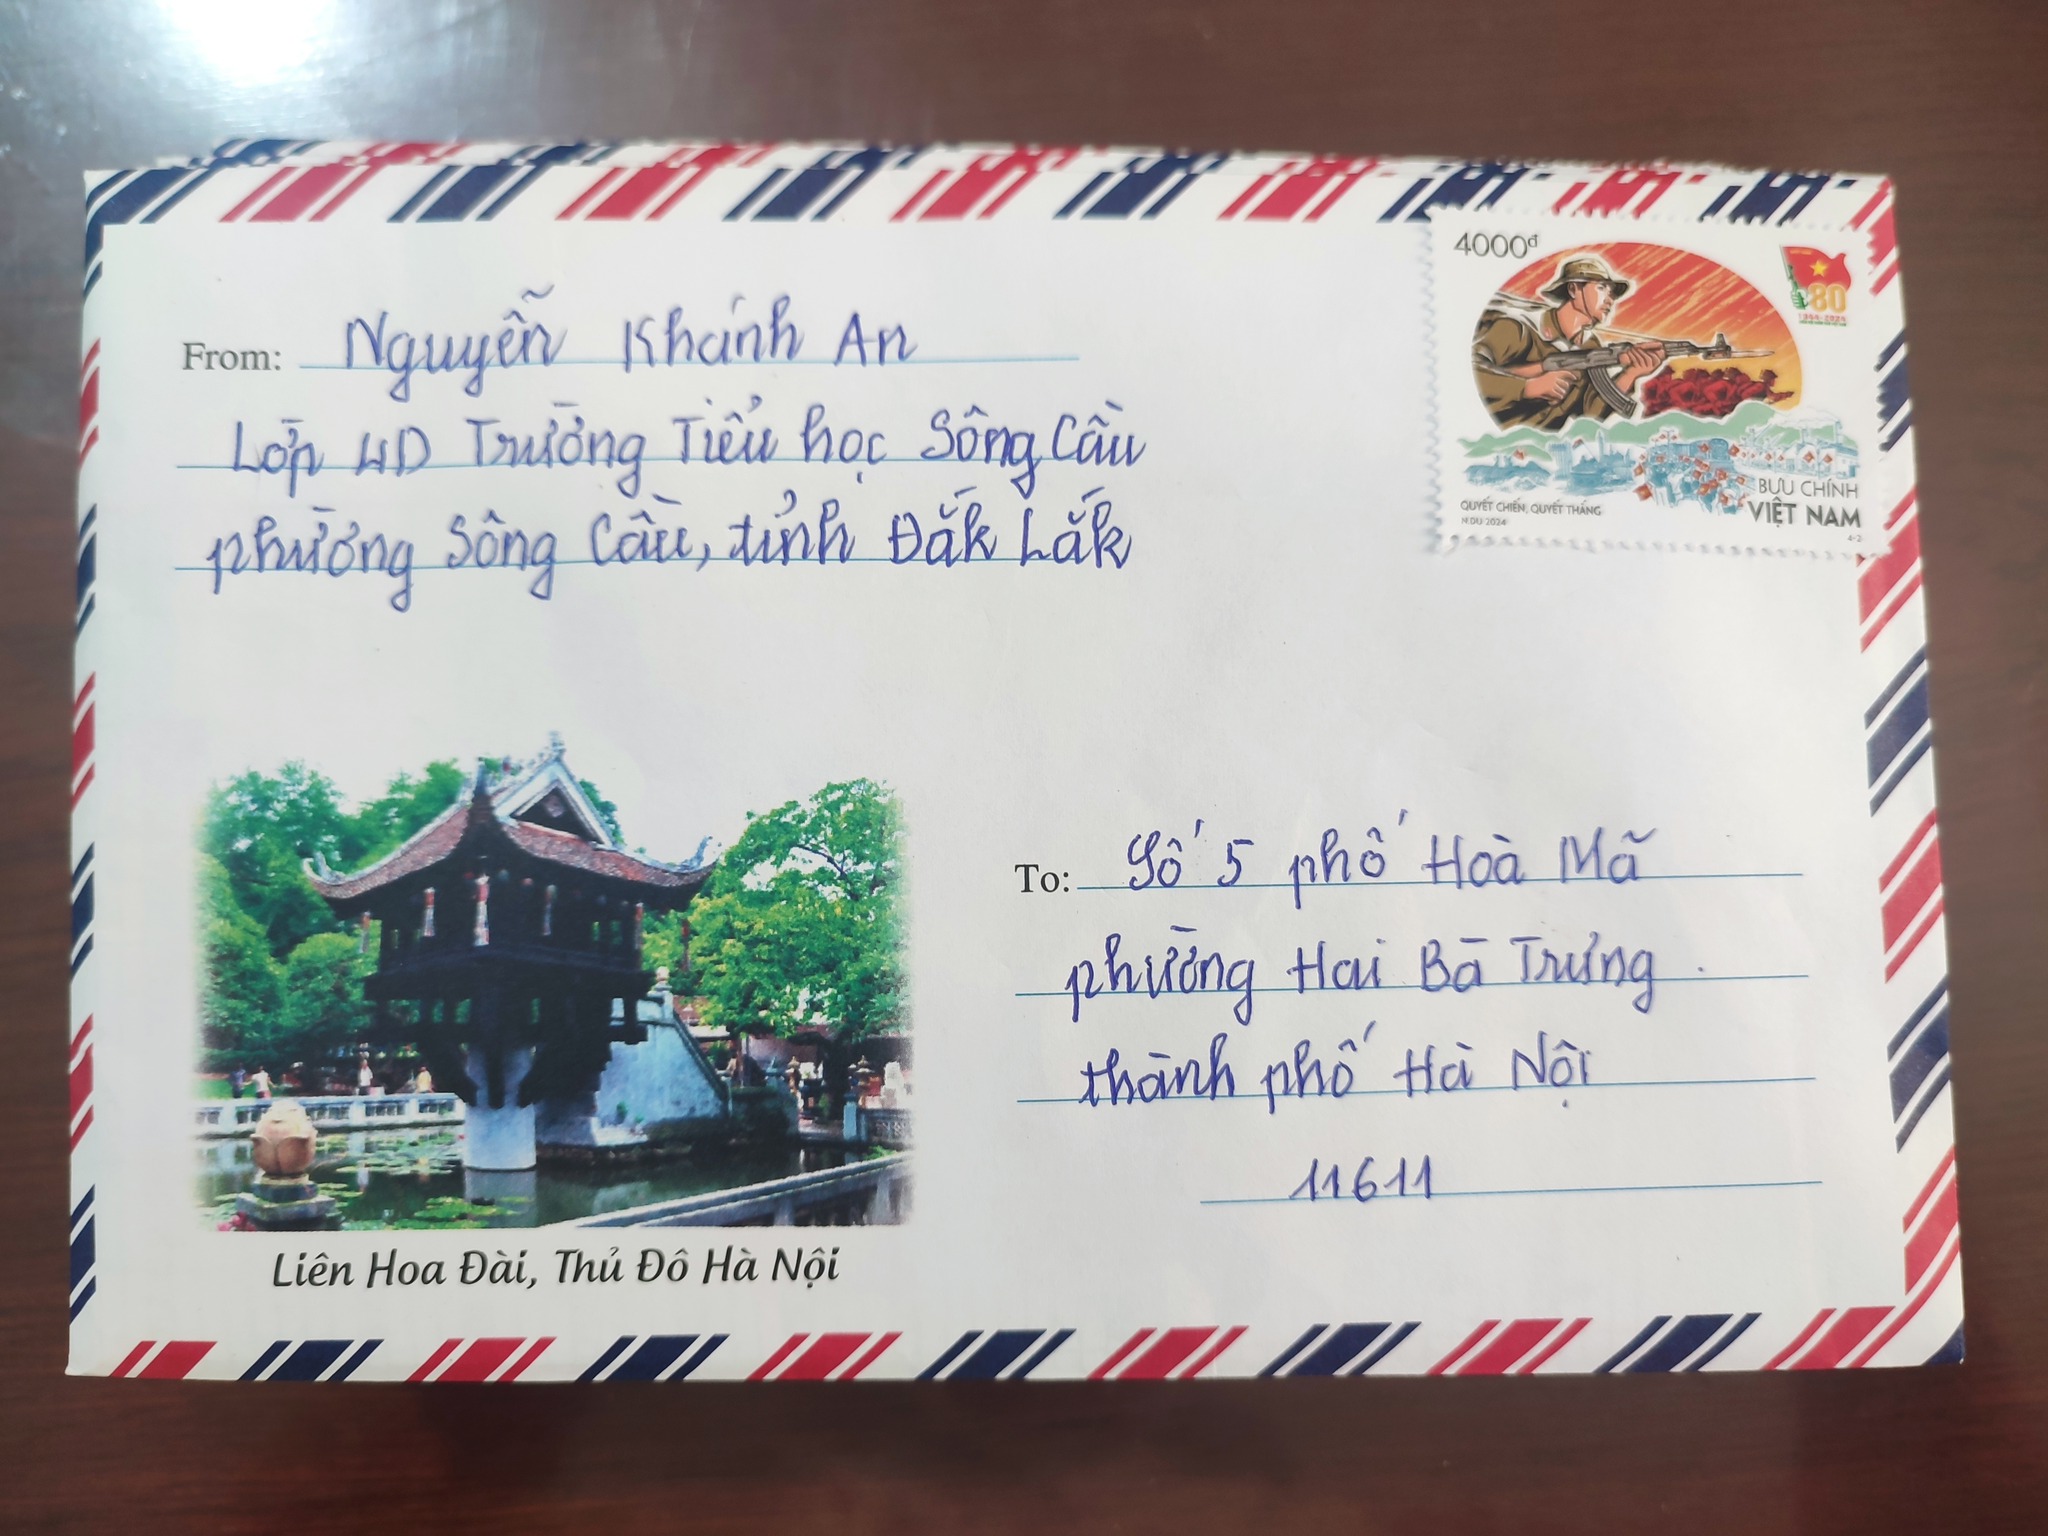 From: Nguyễn Khánh An
Lớp 4D Trường Tiểu học Sông Cầu
phường Sông Cầu, tỉnh Đắk Lắk
4000đ
80
1944-2024
QUYẾT CHIẾN, QUYẾT THẮNG
N.DU 2024
BƯU CHÍNH
VIỆT NAM
4-2
To: Số 5 phố Hoà Mã
phường Hai Bà Trưng.
thành phố Hà Nội
11611
Liên Hoa Đài, Thủ Đô Hà Nội